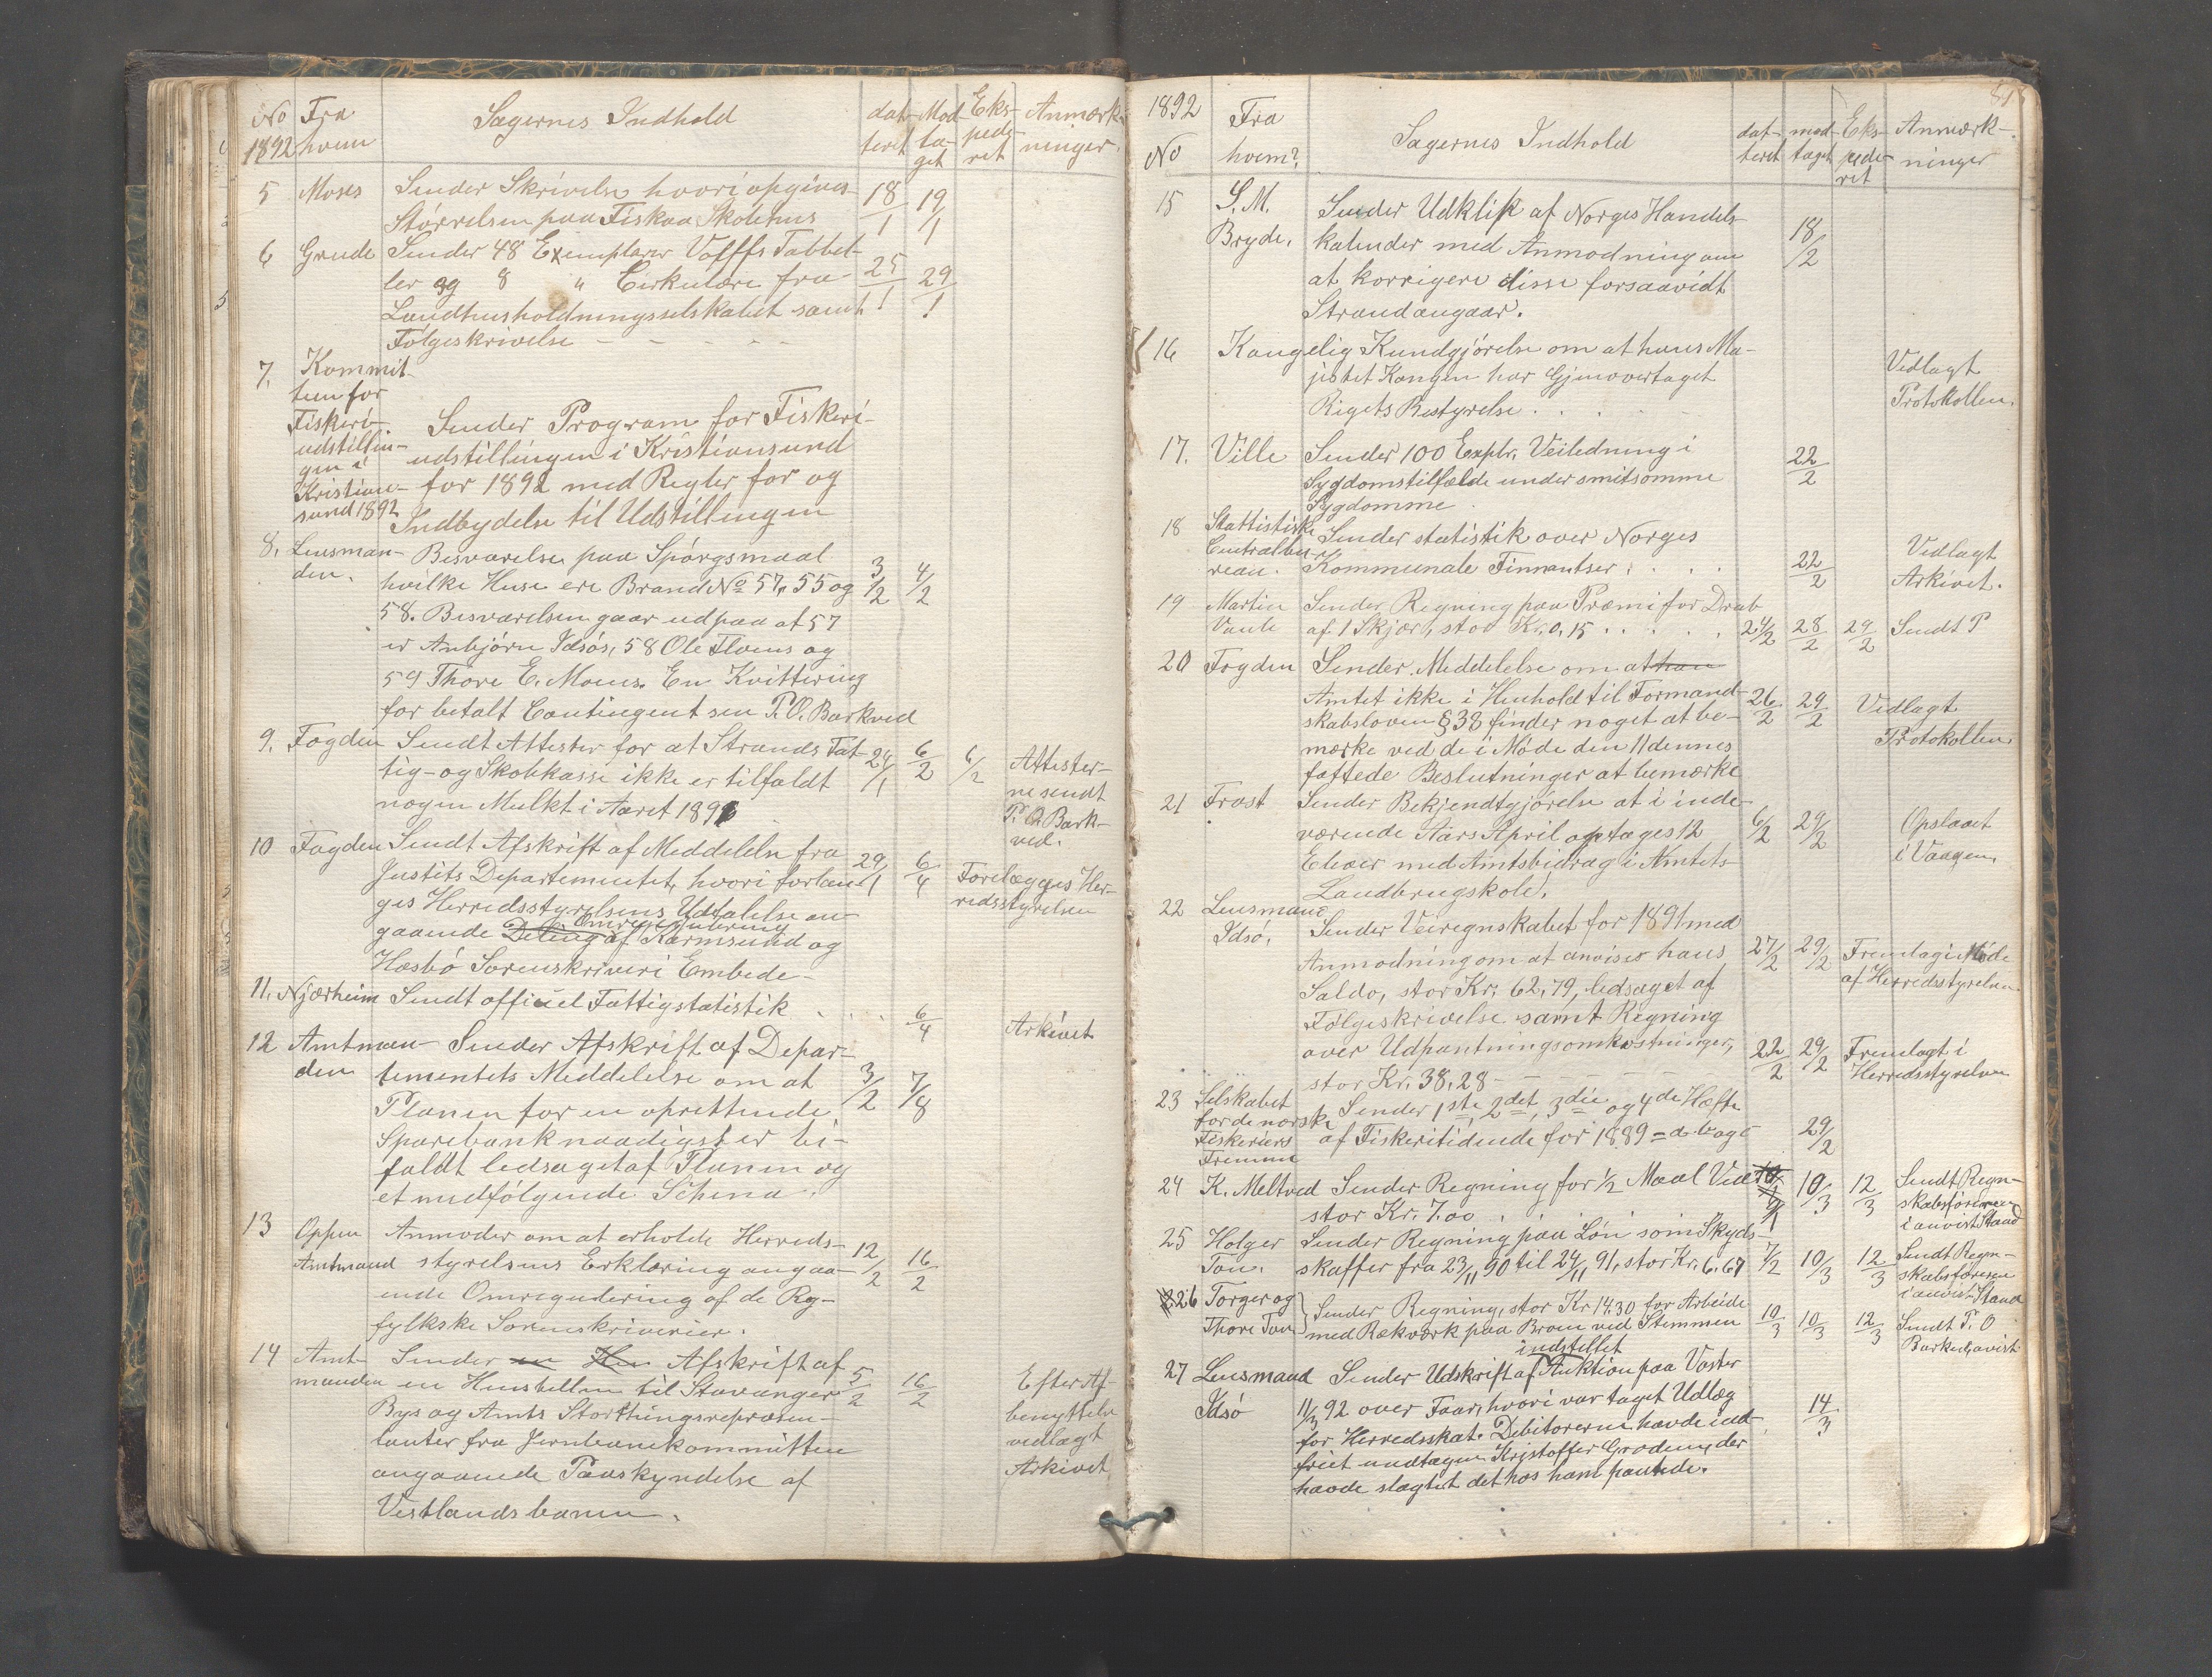 No Fra Sagernes Indhold dat- Mod- Eks- Anmærk-
1892 hvem teret ta- pede- ninger.
get ret
5 Moses Sender Skrivelse hvori opgives 18/1 19/1
Størrelsen paa Fiskaa Skolehus
6 Grude Sender 48 Exemplarer Volffs Tabbel-
ler og 8 " Cirkulære fra 25/1 29/1
Landhusholdningsselskabet samt
Følgeskrivelse - - - - -
7. Kommit-
teen for
Fiskeri- Sender Program for Fiskeri-
udstillin- udstillingen i Kristiansund
gen i
Kristian- for 1892 med Regler for og
sund 1892 Indbydelse til Udstillingen
8. Lensman- Besvarelse paa Spørgsmaal
den. hvilke Huse ere Brand No 57, 55 og 3/2 4/2
58. Besvarelsen gaar ud paa at 57
er Anbjørn Idsøs, 58 Ole Floens og
59 Thore E. Moens. En Kvittering
for betalt Contingent sen P. O. Barkved
9. Fogden Sendt Attester for at Strands Fat- 24/1 6/2 6/2 Attester-
tig- og Skolekasse ikke er tilfaldt ne sendt
nogen Mulkt i Aaret 1891 P. O. Bark-
ved.
10 Fogden Sendt Afskrift af Meddelelse fra 29/1 6/4 Forelægges Her-
Justits Departementet, hvori forlan- redsstyrelsen
ges Herredsstyrelsens Udtalelse an-
Omregulering
gaaende Deling af Karmsund og
Hesbø Sorenskriveri Embede -
11. Njærheim Sendt officiel Fattigstatistik . . . 6/4 Arkivet
12 Amtman- Sender Afskrift af Depar-
den tementets Meddelelse om at 3/2 7/8
Planen for en oprettende
Sparebank naadigst er bi-
faldt ledsaget af Planen og
et medfølgende Schema.
13 Oppen Anmoder om at erholde Herreds-
Amtmand styrelsens Erklæring angaa- 12/2 16/2
ende Omregulering af de Ry-
fylkske Sorenskriverier.
14 Amt- Sender en Hen Afskrift af
manden en Henstillen til Stavanger 5/2 16/2 Efter Af-
Bys og Amts Storthingsrepræsen- benyttelse
tanter fra Jernbanekommitteen vedlagt
angaaende Paaskyndelse af Arkivet
Vestlandsbanen.
1892 Fra Sagernes Indhold dat- mod- Eks- Anmærk-
No hvem? teret taget pede- ninger
ret
15 S. M. Sender Udklip af Norges Handels-
Bryde. kalender med Anmodning om 18/2
at korrigere disse forsaavidt
Strand angaar.
16 Kongelig Kundgjørelse om at hans Ma-
jestet Kongen har Gjenovertaget Vedlagt
Rigets Bestyrelse. . . . Protokollen.
17. Ville Sender 100 Explr. Veiledning i
Sygdomstilfælde under smitsomme 22/2
Sygdomme
18 Stattistiske Sender statistik over Norges
Centralbu- Kommunale Finnantser . . . . 22/2 Vedlagt
reau. Arkivet.
19 Martin Sender Regning paa Præmi for Drab
Vaule af 1 Skjør, stor Kr. 0,15 . . . . . 24/2 28/2 29/2 Sendt P
20 Fogden Sender Meddelelse om at han
Amtet ikke i Henhold til Formand- 26/2 29/2 Vedlagt
skabsloven § 38 finder noget at be- Protokollen.
mærke ved de i Møde den 11 dennes
fattede Beslutninger at bemærke
21 Frost Sender Bekjendtgjørelse at i inde-
værende Aars April optages 12 6/2 29/2 Opslaaet
Elever med Amtsbidrag i Amtets i Vaagen.
Landbrugskole.
22 Lensmand Sender Veiregnskabet for 1891 med
Idsø. Anmodning om at anvises hans 27/2 29/2 Fremlagt i Møde
Saldo, stor Kr. 62,79, ledsaget af af Herredsstyrelsen.
Følgeskrivelse samt Regning
over Udpantningsomkostninger, 22/2 29/2 Fremlagt i
stor Kr. 38,28 - - - - - Herredsstyrelsen
23 Selskabet Sender 1ste, 2det, 3die og 4de Hefte
for de norske af Fiskeritidende for 1889 29/2
Fiskeriers
Fremme
24 K. Meltved Sender Regning for 1/2 Maal Ved 10/3 12/3 Sendt Regn-
stor Kr. 7.00 . . . . . skabsføreren
i anvist Stand
25 Holger Sender Regning paa Løn som Skyds- 7/2 10/3 12/3 Sendt Regn-
Tou. skaffer fra 23/11 90 til 24/11 91, stor Kr. 6.67 skabsføreren
i anvist Stand
26 Torger og Sender Regning, stor Kr 14.30 for Arbeide
Thore Tou med Rækværk paa Broen ved Stemmen 10/3 10/3 12/3 Sendt P. O
indstillet Barkved anvist
27 Lensmand Sender Udskrift af Auktion paa Vaster
Idsø 11/3 92 over Faar, hvori var taget Udlæg 14/3
for Herredsskat. Debitorerne havde ind-
friet undtagen Kristoffer Groden, der
havde slagtet det hos ham pantede.